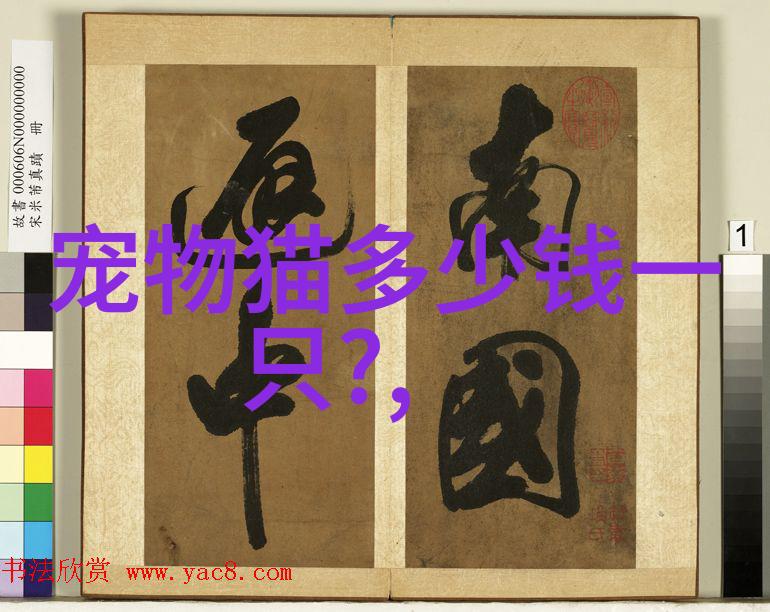 宠物猫多少钱一
只?,
南國
中
故書 000606N000000000
宋米芾真蹟 冊
1
书法欣赏 www.yac8.com